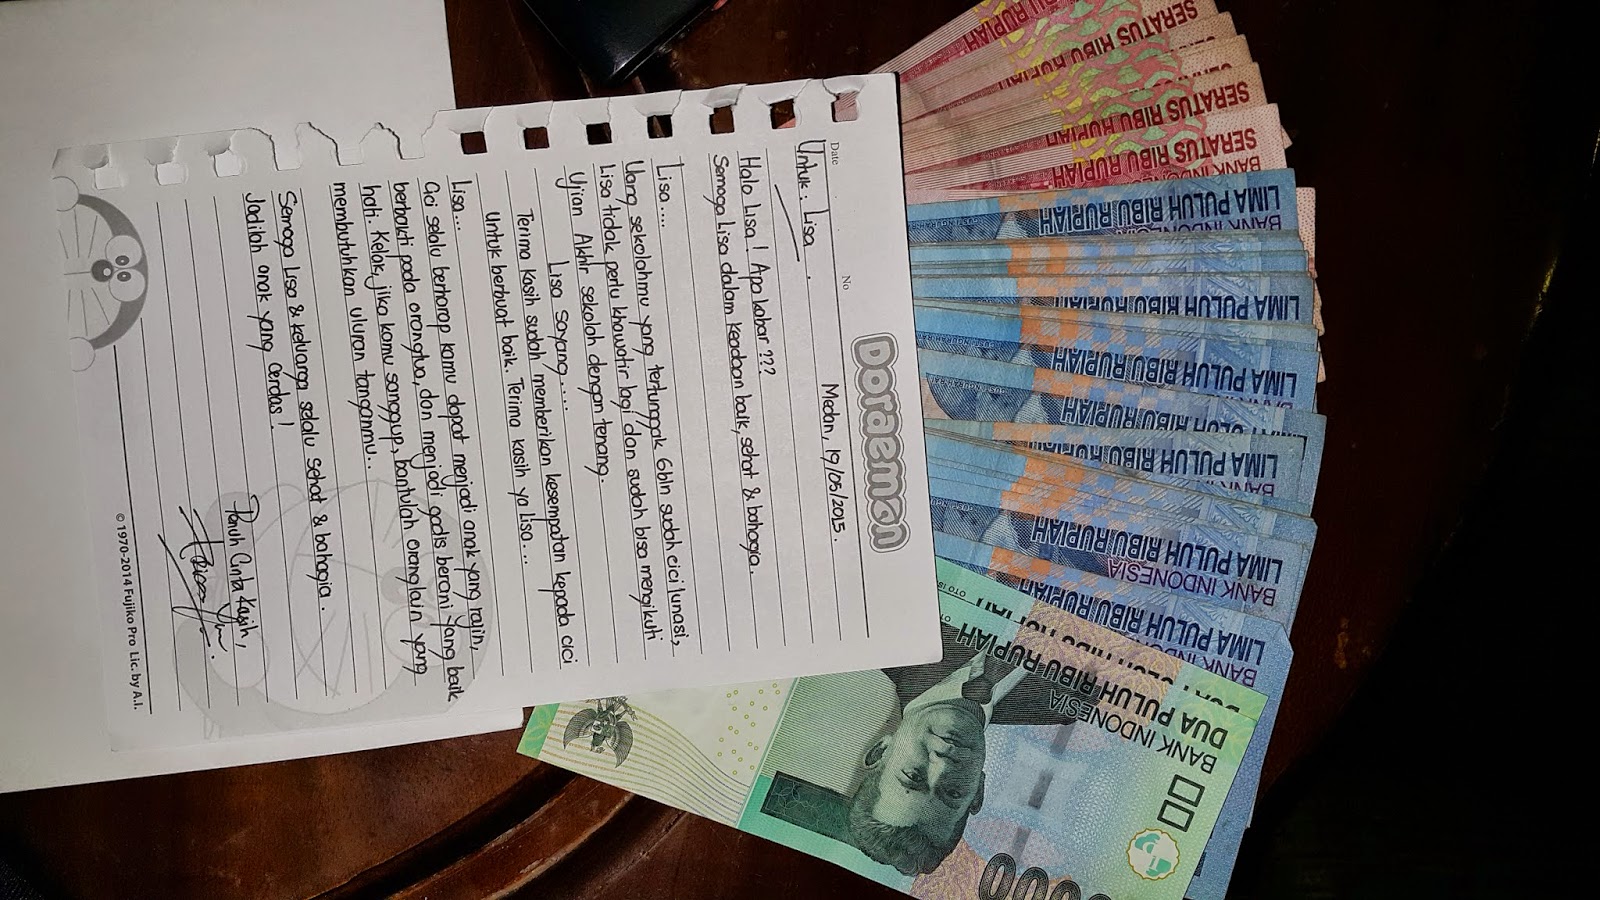 Doraemon
Date
No
Medan, 19/05/2015.
Untuk : Lisa.
Halo Lisa! Apa kabar???
Semoga Lisa dalam keadaan baik, sehat & bahagia.
Lisa....
Uang sekolahmu yang tertunggak 6bln sudah cici lunasi,
Lisa tidak perlu khawatir lagi dan sudah bisa mengikuti
Ujian Akhir sekolah dengan tenang.
Lisa Sayang.....
Terima kasih sudah memberikan kesempatan kepada cici
Untuk berbuat baik. Terima kasih ya Lisa...
Lisa...
Cici selalu berharap kamu dapat menjadi anak yang rajin,
berbakti pada orangtua, dan menjadi gadis berani yang baik
hati. Kelak, jika kamu sanggup, bantulah orang lain yang
membutuhkan uluran tanganmu..
Semoga Lisa & keluarga selalu sehat & bahagia.
Jadilah anak yang cerdas!
Penuh Cinta Kasih,
© 1970-2014 Fujiko Pro Lic. by A.I.
SERATUS RIBU RUPIAH
SERATUS RIBU RUPIAH
SERATUS RIBU RUPIAH
SERATUS RIBU RUPIAH
BANK INDONESIA
LIMA PULUH RIBU RUPIAH
BANK INDONESIA
LIMA PULUH RIBU RUPIAH
LIMA PULUH RIBU RUPIAH
LIMA PULUH RIBU RUPIAH
LIMA PULUH RIBU RUPIAH
LIMA PULUH RIBU RUPIAH
BANK INDONESIA
LIMA PULUH RIBU RUPIAH
DUA PULUH RIBU RUPIAH
BANK INDONESIA